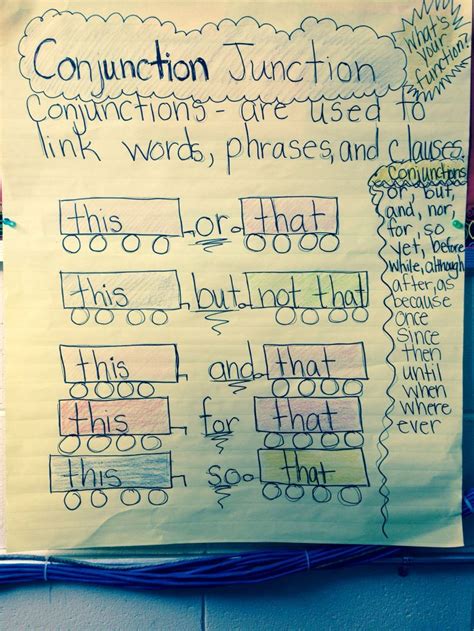 Conjunction Junction
What's
your
function?
Conjunctions - are used to
link words, phrases, and clauses.
this or that
this but not that
this and that
this for that
this so that
Conjunctions
or, but,
and, nor,
for, so
yet, before
while, although
after, as
because
once
since
then
until
when
where
ever